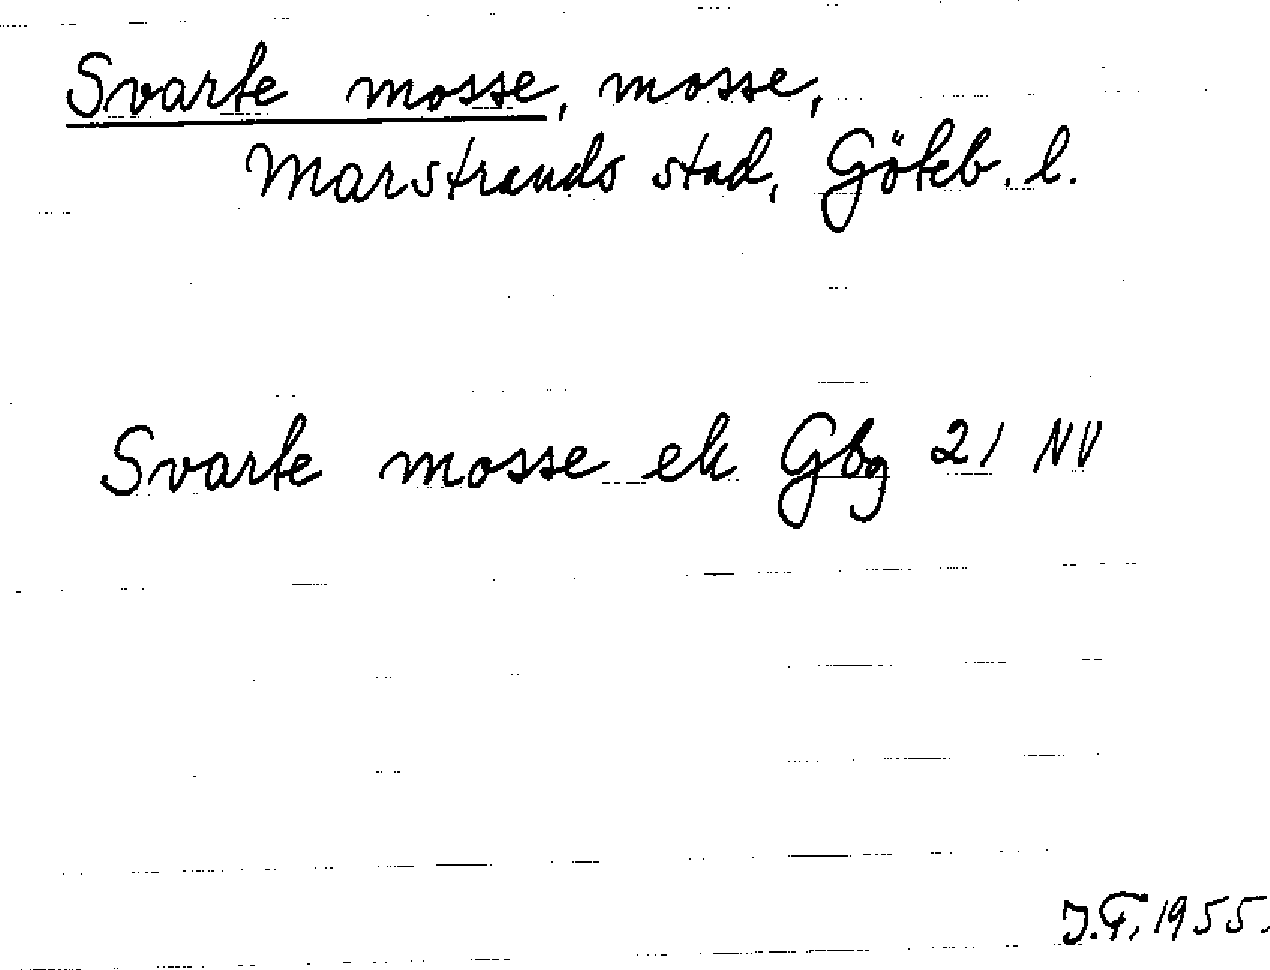 Svarte mosse, mosse,
Marstrands stad, Göteb. l.
Svarte mosse ek Gbg 21 NV
J.F. 1955.